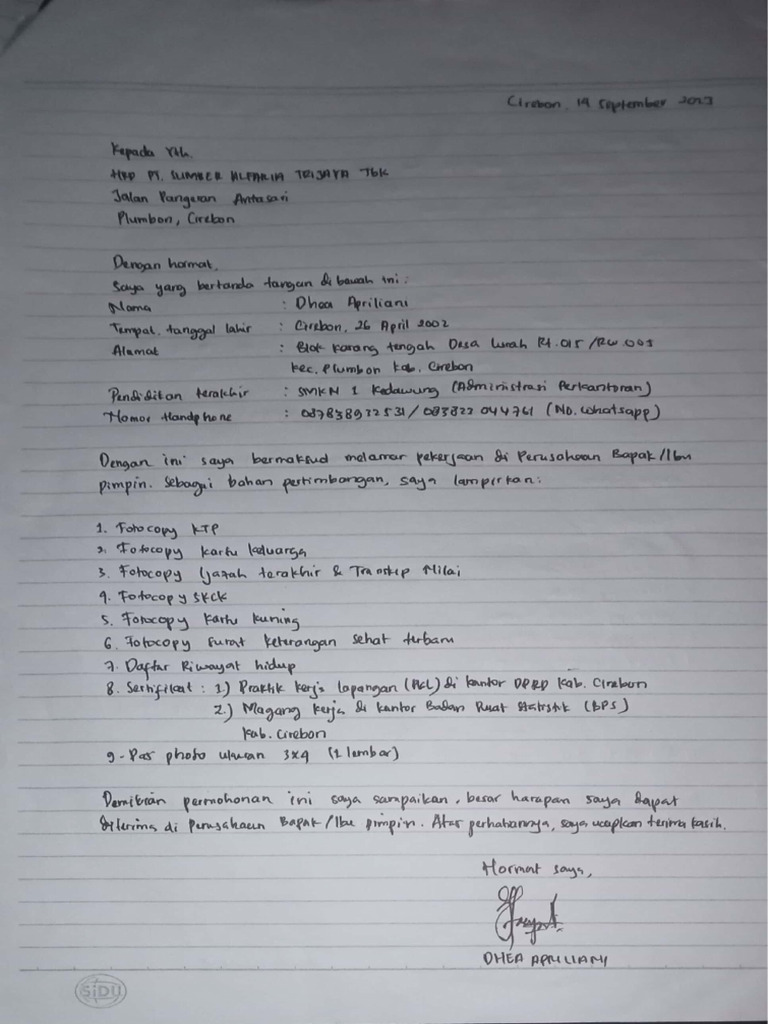 Cirebon, 19 September 2023
Kepada Yth.
HRD PT. SUMBER ALFARIA TRIJAYA Tbk
Jalan Pangeran Antasari
Plumbon, Cirebon
Dengan hormat,
Saya yang bertanda tangan di bawah ini :
Nama : Dhea Apriliani
Tempat, tanggal lahir : Cirebon, 26 April 2002
Alamat : Blok Karang tengah Desa Lurah Rt.015 /Rw.005
Kec. Plumbon Kab. Cirebon
Pendidikan terakhir : SMKN 1 Kedawung (Administrasi Perkantoran)
Nomor Handphone : 087838922531 / 083822044761 (No. Whatsapp)
Dengan ini saya bermaksud melamar pekerjaan di Perusahaan Bapak/Ibu
pimpin. Sebagai bahan pertimbangan, saya lampirkan:
1. Fotocopy KTP
2. Fotocopy Kartu keluarga
3. Fotocopy Ijazah terakhir & Transkip Nilai
4. Fotocopy SKCK
5. Fotocopy Kartu Kuning
6. Fotocopy Surat Keterangan Sehat terbaru
7. Daftar Riwayat hidup
8. Sertifikat : 1) Praktik Kerja lapangan (PKL) di kantor DPRD Kab. Cirebon
2.) Magang Kerja di kantor Badan Pusat Statistik (BPS)
Kab. Cirebon
9. Pas photo ukuran 3x4 (1 lembar)
Demikian permohonan ini saya sampaikan, besar harapan saya dapat
diterima di Perusahaan Bapak/Ibu pimpin. Atas perhatiannya, saya ucapkan terima kasih.
Hormat saya,
DHEA APRILIANI
SiDU